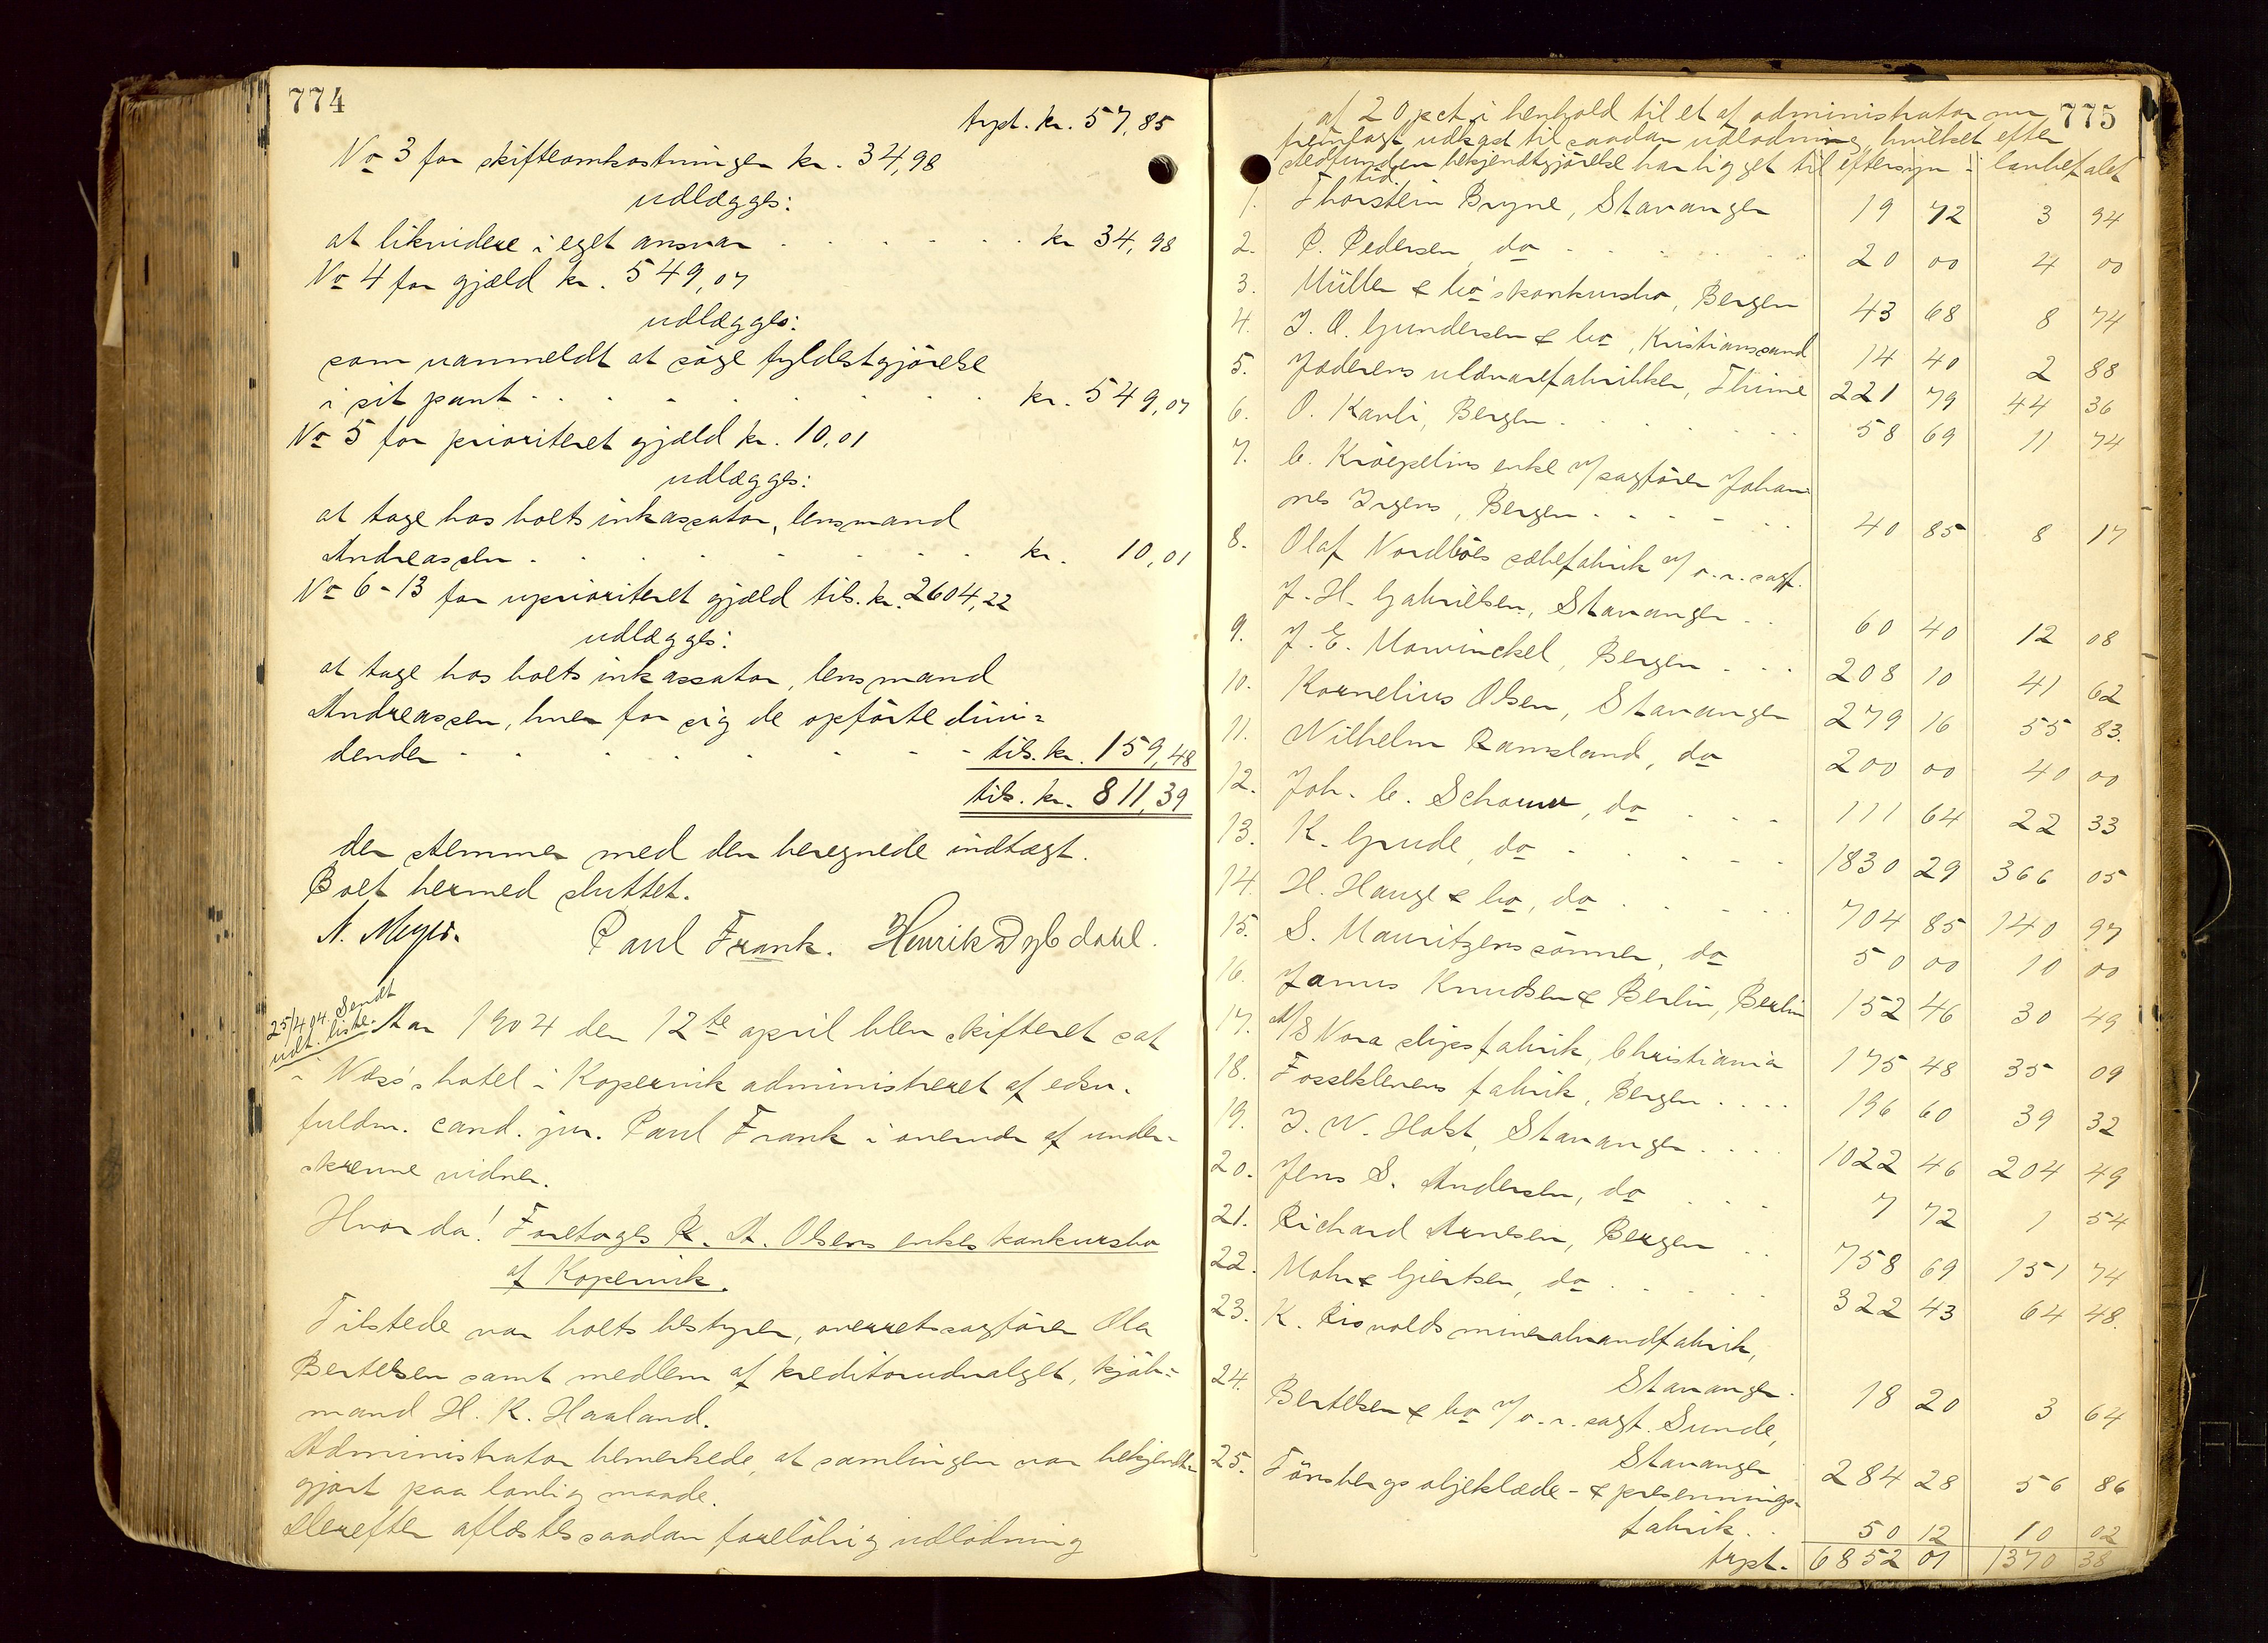 774
trpt. kr. 57,85
No 3 for skifteomkostninger kr. 34,98
udlægges:
at likvidere i eget ansvar . . . . . . kr 34,98
No 4 for gjæld kr. 549,07
udlægges:
som uanmeldt at söge fyldestgjörelse
i sit pant . . . . . . . . kr. 549,07
No 5 for prioriteret gjæld kr. 10,01
udlægges:
at tage hos boets inkassator, lensmand
Andreassen . . . . . . . kr. 10,01
No 6-13 for uprioriteret gjæld tils. kr. 2604,22
udlægges:
at tage hos boets inkassator, lensmand
Andreassen, hver for sig de opförte divi=
dender . . . . . . . - tils. kr. 159,48
tils. kr. 811,39
der stemmer med den beregnede indtægt.
Boet hermed sluttet.
N. Meyer. Paul Frank. Henrik Dybdahl.
25/4 04. Sendt
udl. liste.
Aar 1904 den 12te april blev skifteret sat
i Næss's hotel i Kopervik administreret af edsv.
fuldm. cand. jur. Paul Frank i overvær af under-
skrevne vidner.
Hvorda! Foretoges R. A. Olsens enkes konkursbo
af Kopervik.
Tilstede var boets bestyrer, overretssagförer Ole
Bertelsen samt medlem af kreditorudvalget, kjöb=
mand H. K. Haaland.
Administrator bemerkede, at samlingen var bekjendt=
gjort paa lovlig maade.
Derefter aflæstes saadan foreløbig udlodning
775
af 20 pct i henhold til et af administrator nu
fremlagt udkast til saadan udlodning, hvilket efter
stedfunden bekjendtgjörelse har ligget til eftersyn i lovbefalet
tid.
1. Thorstein Bryne, Stavanger 19 72 3 94
2. P. Pedersen, do . . . . . . 20 00 4 00
3. Müller & Co's konkursbo, Bergen 43 68 8 74
4. J. O. Gundersen & Co, Kristianssand 14 40 2 88
5. Jæderens uldvarefabrikker, Thime 221 79 44 36
6. O. Kavli, Bergen . . . . . . 58 69 11 74
7. C. Kröepelins enke v/ sagförer Johan=
nes Irgens, Bergen . . . . . . . 40 85 8 17
8. Olaf Nordböes sæbefabrik v/ o.r.sagf.
J. H. Gabrielsen, Stavanger . . 60 40 12 08
9. J. E. Mowinckel, Bergen . . . 208 10 41 62
10. Kornelius Olsen, Stavanger 279 16 55 83.
11. Vilhelm Ramsland, do 200 00 40 00
12. Joh. C. Schouw, do . . . 111 64 22 33
13. K. Grude, do . . . . . 1830 29 366 05
14. H. Hauge & Co, do . . . . 704 85 140 97
15. S. Mauritzens sönner, do 50 00 10 00
16. Janus Knudsen & Berlin, Berlin 152 46 30 49
17. A/S Nora slipsfabrik, Christiania 175 48 35 09
18. Fosseklevens fabrik, Bergen . . . . 196 60 39 32
19. J. W. Holst, Stavanger . . . . 1022 46 204 49
20. Jens S. Andersen, do . . . 7 72 1 54
21. Richard Arnesen, Bergen . . 758 69 151 74
22. Mohr & Giertsen, do . . . . . 322 43 64 48.
23. K. Risvolds mineralvandfabrik,
Stavanger. 18 20 3 64
24. Bertelsen & Co v/ o.r.sagf. Sunde,
Stavanger 284 28 56 86
25. Tönsbergs oljeklæde- & presennings-
fabrik . . 50 12 10 02
trpt. 6852 01 1370 38